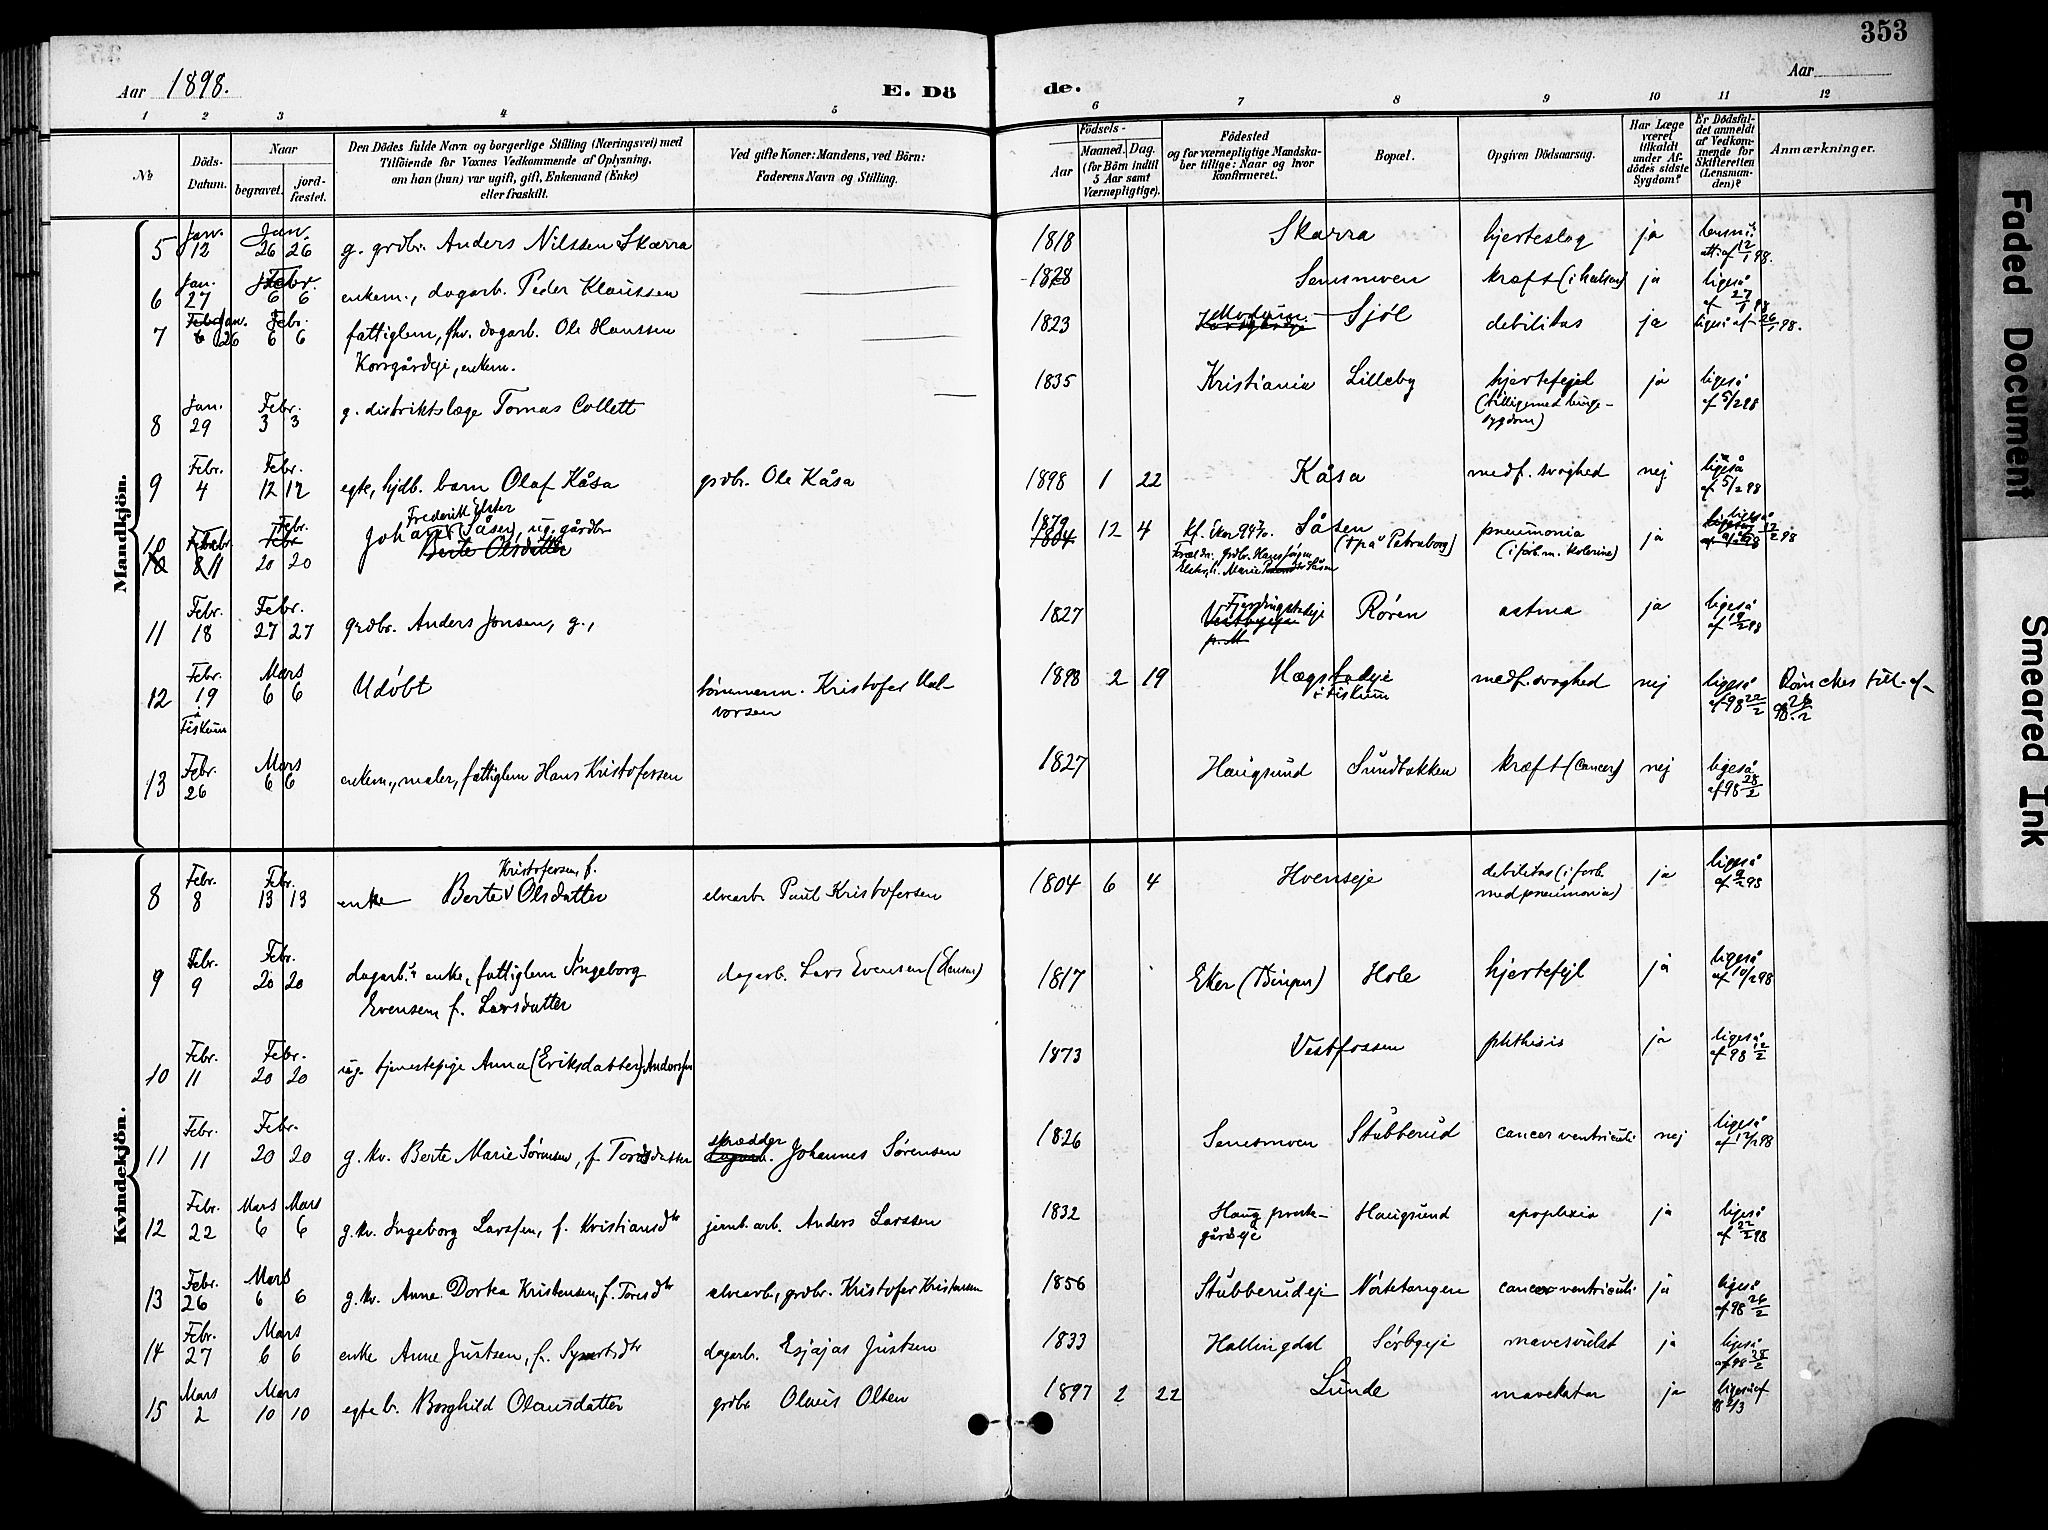 353
Aar 1898.
E. Dö
de.
Aar
1 2 3 4 5 6 7 8 9 10 11 12
No
Döds-Datum.
Naar
begravet.
jord-fæstet.
Den Dödes fulde Navn og borgerlige Stilling (Næringsvei) med
Tilföiende for Voxnes Vedkommende af Oplysning,
om han (hun) var ugift, gift, Enkemand (Enke)
eller fraskilt.
Ved gifte Koner: Mandens, ved Börn:
Faderens Navn og Stilling.
Födsels-
Aar
Maaned. Dag.
(for Börn indtil
5 Aar samt
Værnepligtige).
Födested
og for værnepligtige Mandska-
ber tillige: Naar og hvor
konfirmeret.
Bopæl.
Opgiven Dödsaarsag.
Har Læge
været
tilkaldt
under Af-
dödes sidste
Sygdom?
Er Dödsfal-
det anmeldt
af Vedkom-
mende for
Skifteretten
(Lensman-
den)?
Anmærkninger.
Mandkjön.
5 Jan. 12 Jan. 26 26 g. grdbr. Anders Nilssen Skarra 1818 Skarra hjerteslag ja af 12/1 98.
6 Jan. 27 Febr. 6 6 enkem., dagarb. Peder Klaussen 1828 Semsmoen kræft (i halsen) ja ligeså af 27/1 98
7 Jan. 26 Febr. 6 6 fattiglem, fhv. dagarb. Ole Hanssen 1823 Modum Sjøl debilitas ja ligeså af 26/1 98.
Korsgårdeje, enkem.
8 Jan. 29 Febr. 3 3 g. distriktslæge Tomas Collett 1835 Kristiania Lilleby hjertefejl ja ligeså af 5/2 98
(tilligemed lunge-
sygdom)
9 Febr. 4 Febr. 12 12 egte, hjdb. barn Olaf Kåsa grdbr. Ole Kåsa 1898 1 22 Kåsa medf. svaghed nej ligeså af 5/2 98
10 Febr. 11 Febr. 20 20 Johan Fredrik Elster (Såsen) ug. gårdbr. 1879 12 4 Såsen pneumonia ja ligeså 12/2 98
Berte Olsdatter 1804 (i forb. m. kolerine)
11 Febr. 18 Febr. 27 27 grdbr. Anders Jonsen, g., 1827 Røren astma ja ligeså af 19/2 98
12 Febr. 19 i Fiskum Mars 6 6 Udöbt tömmerm. Kristofer Hal-
vorsen 1898 2 19 Hægstadeje i Fiskum medf. svaghed nej ligeså af 98 22/2
13 Febr. 26 Mars 6 6 enkem., maler, fattiglem Hans Kristofersen 1827 Haugsund Sundbakken kræft (cancer) nej ligeså af 98 28/2
Kvindekjön.
8 Febr. 8 Febr. 13 13 enke Berte Kristofersen, f. Olsdatter elvearb. Paul Kristofersen 1804 6 4 Hvenseje debilitas (i forb. ja ligeså af 9/2 98
med pneumonia)
9 Febr. 9 Febr. 20 20 dagarb.s enke, fattiglem Ingeborg dagarb. Lars Evensen 1817 Eker (Bingen) Hole hjertefejl ja ligeså af 10/2 98
Evensen f. Larsdatter
10 Febr. 11 Febr. 20 20 ug. tjenestepige Anna (Eriksdatter) Andersen 1873 Vestfossen phthisis ja ligeså af 98 12/2
11 Febr. 11 Febr. 20 20 g. kv. Berte Marie Sørensen, f. Toresdatter skrædder Johannes Sørensen 1826 Semsmoen Stubberud cancer ventriculi nej ligeså af 12/2 98
12 Febr. 22 Mars 6 Mars 6 g. kv. Ingeborg Larssen, f. Kristiansdtr jernb. arb. Anders Larssen 1832 Haug prest- Haugsund apoplexia ja ligeså af 22/2 98
gårdseje
13 Febr. 26 Mars 6 6 g. kv. Anne Dortea Kristensen, f. Toresdtr elvearb., grdbr. Kristofer Kristensen 1856 Stubberudeje Nørtetangen cancer ventriculi ja ligeså af 98 26/2
14 Febr. 27 Mars 6 6 enke Anne Justsen, f. Syvertsdtr dagarb. Esjajas Justsen 1833 Hallingdal Sørbyeje mavesvulst ja ligeså af 98 28/2
15 Mars 2 Mars 10 10 egte b. Borghild Olausdatter grdbr. Olaus Olsen 1897 2 22 Lunde mavekatar ja ligeså af 98 2/3
Faded Document
Smeared Ink